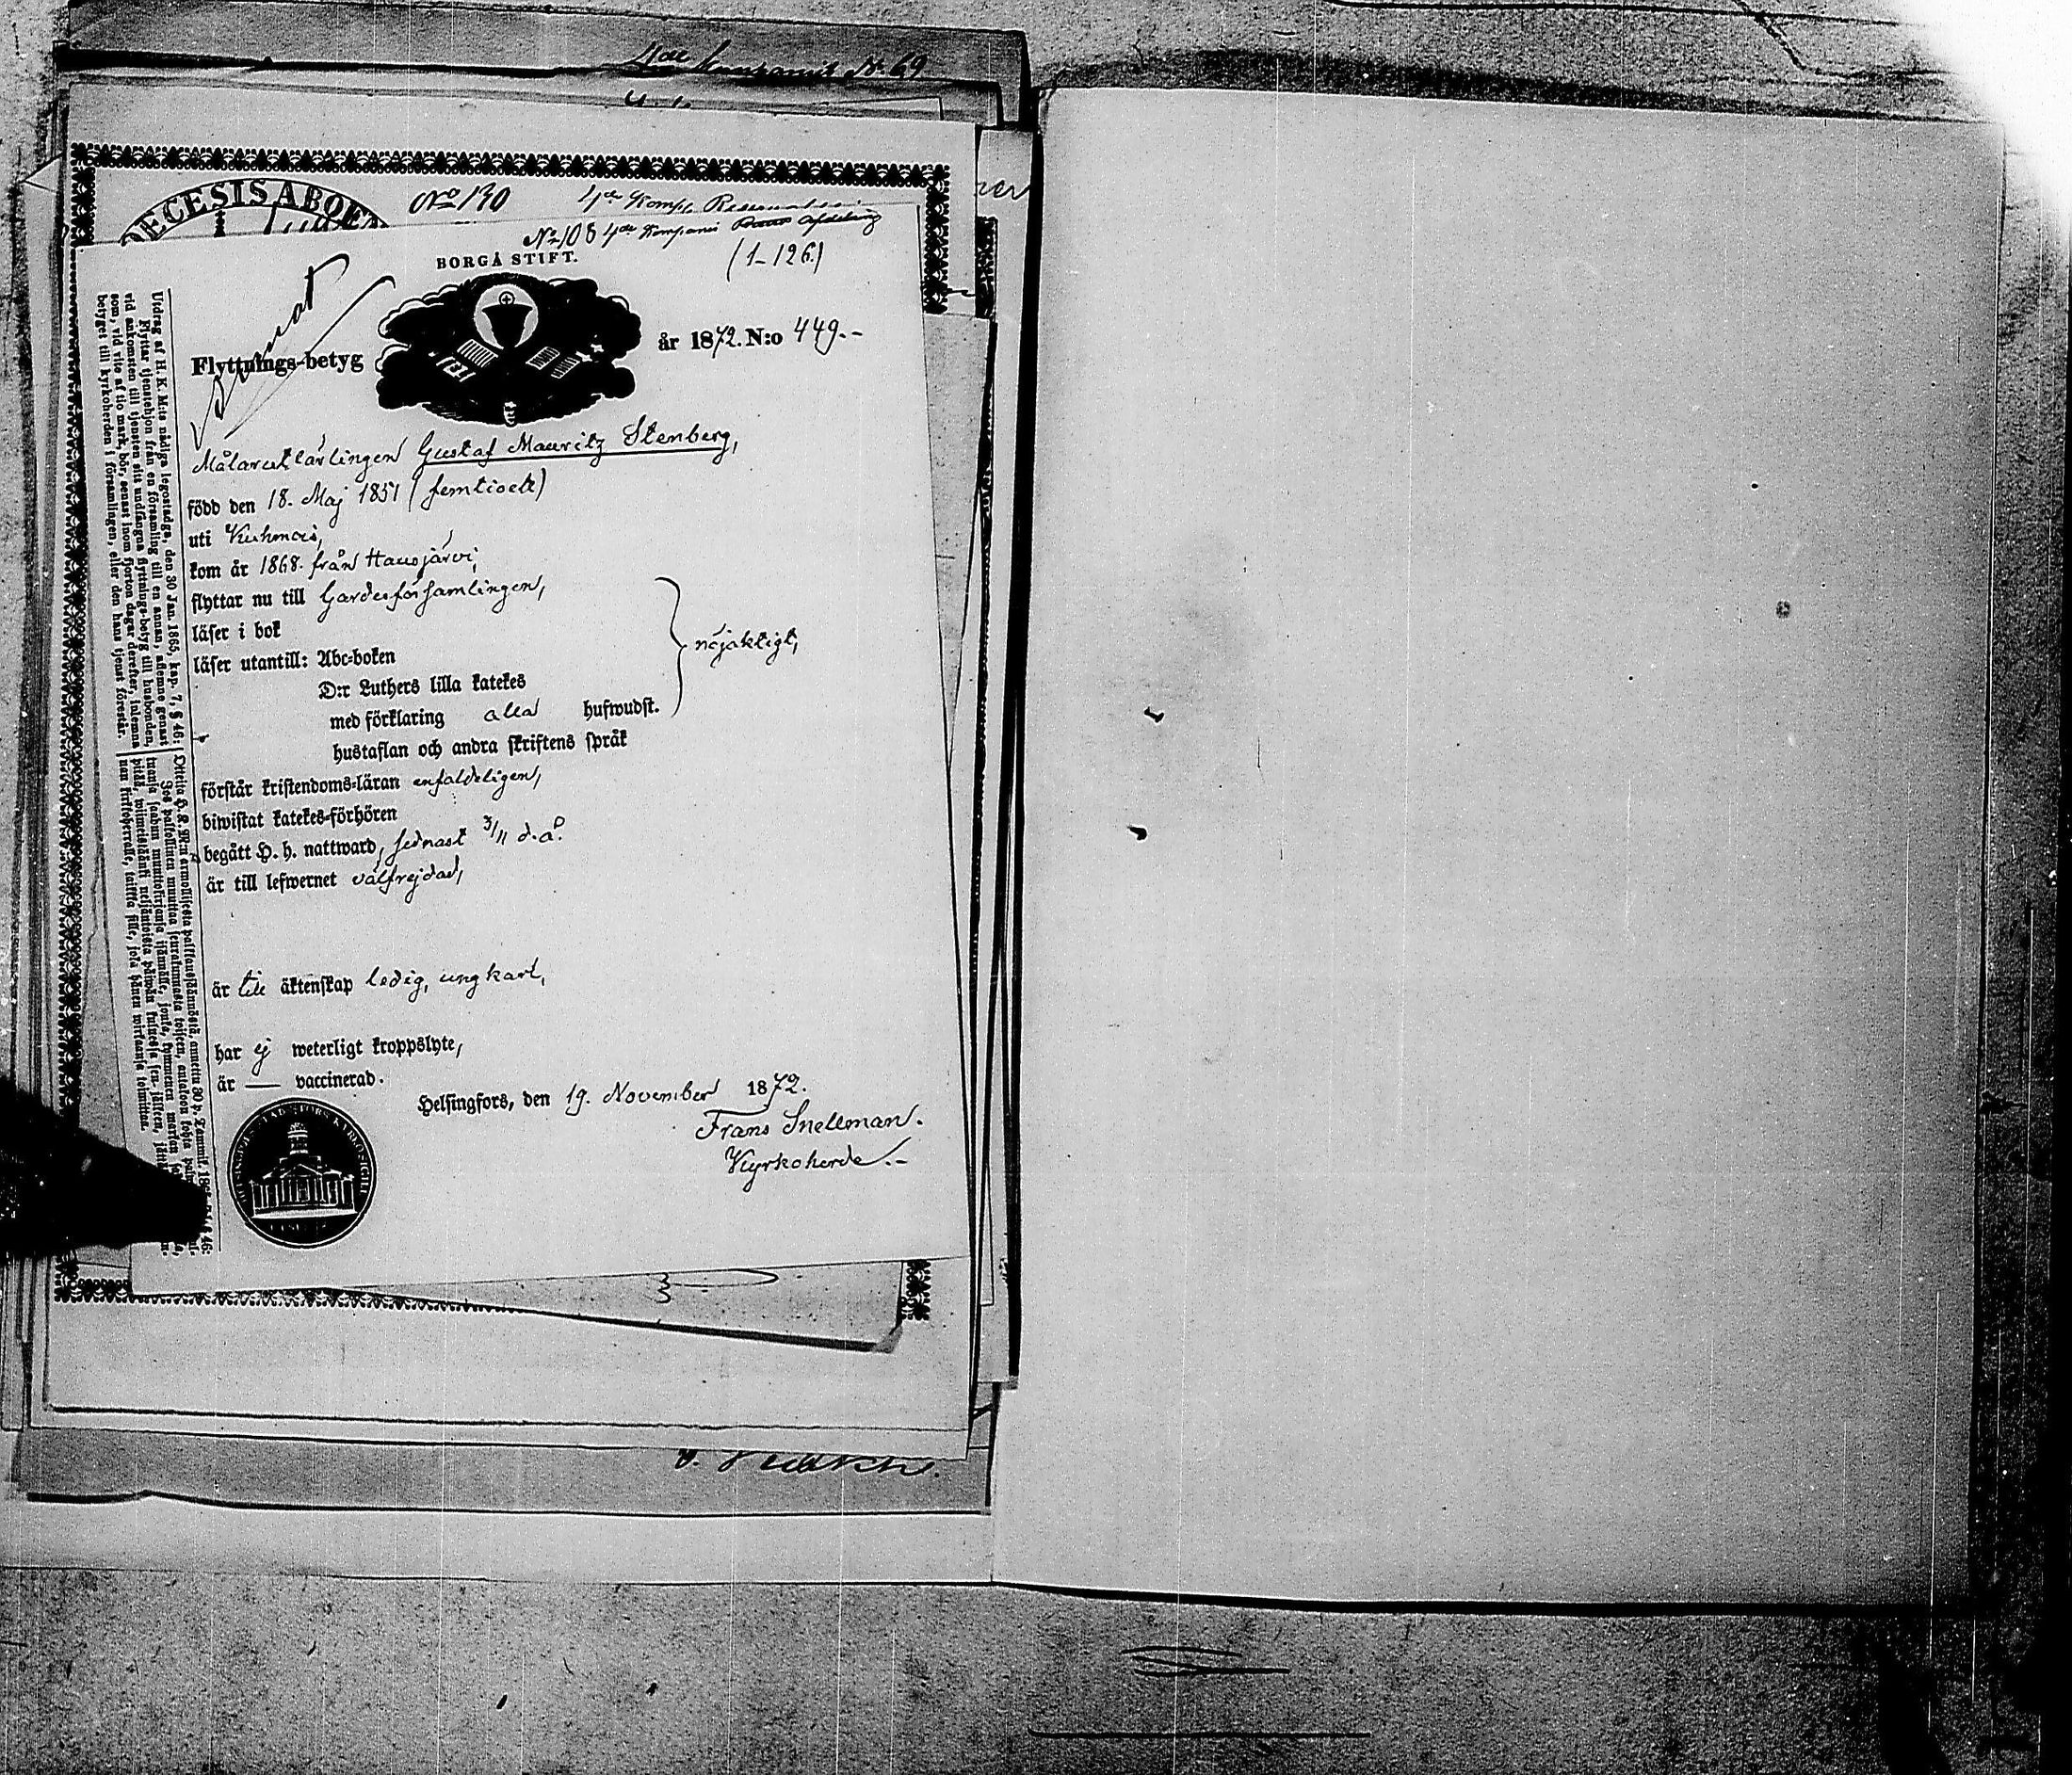 4de Kompanit № 69
DECESIS ABOEN
№ 130 4de Komp.
№ 108 4de Kompani Afdelning
(1-126)
BORGÅ STIFT.
Flyttnings-betyg
år 1872. N:o 449.-
Målarelärlingen Gustaf Mauritz Stenberg,
född den 18. Maj 1851 (femtioett)
uti Kuhmois,
kom år 1868. från Hausjärvi,
flyttar nu till Gardesförsamlingen,
läser i bok
läser utantill: Abc-boken
D:r Luthers lilla katekes
med förklaring alla hufwudst.
nöjaktigt,
hustaflan och andra skriftens språk
förstår kristendoms-läran enfaldeligen,
biwistat katekes-förhören
begått H. h. nattward, sednast 3/11 d.å.
är till lefwernet välfrejdad,
är till äktenskap ledig, ungkarl,
har ej weterligt kroppslyte,
är — vaccinerad.
Helsingfors, den 19. November 1872.
Frans Snellman.
Kyrkoherde.-
Utdrag af H. K. M:ts nådiga legostadga, den 30 Jan. 1865, kap. 7, § 46:
Flyttar tjenstehjon från en församling till en annan, aflemne genast
vid ankomsten till tjensten sitt undfångna flyttnings-betyg till husbonden,
som, vid vite af tio mark, bör, senast inom fjorton dagar derefter, inlemna
betyget till kyrkoherden i församlingen, eller den hans tjenst förestår.
Otteita H. K. M:n armollisesta palkkaussäännöstä, annettu 30 p. Tammik.
Jos palkollinen muuttaa seurakunnasta toiseen, antakoon kohta